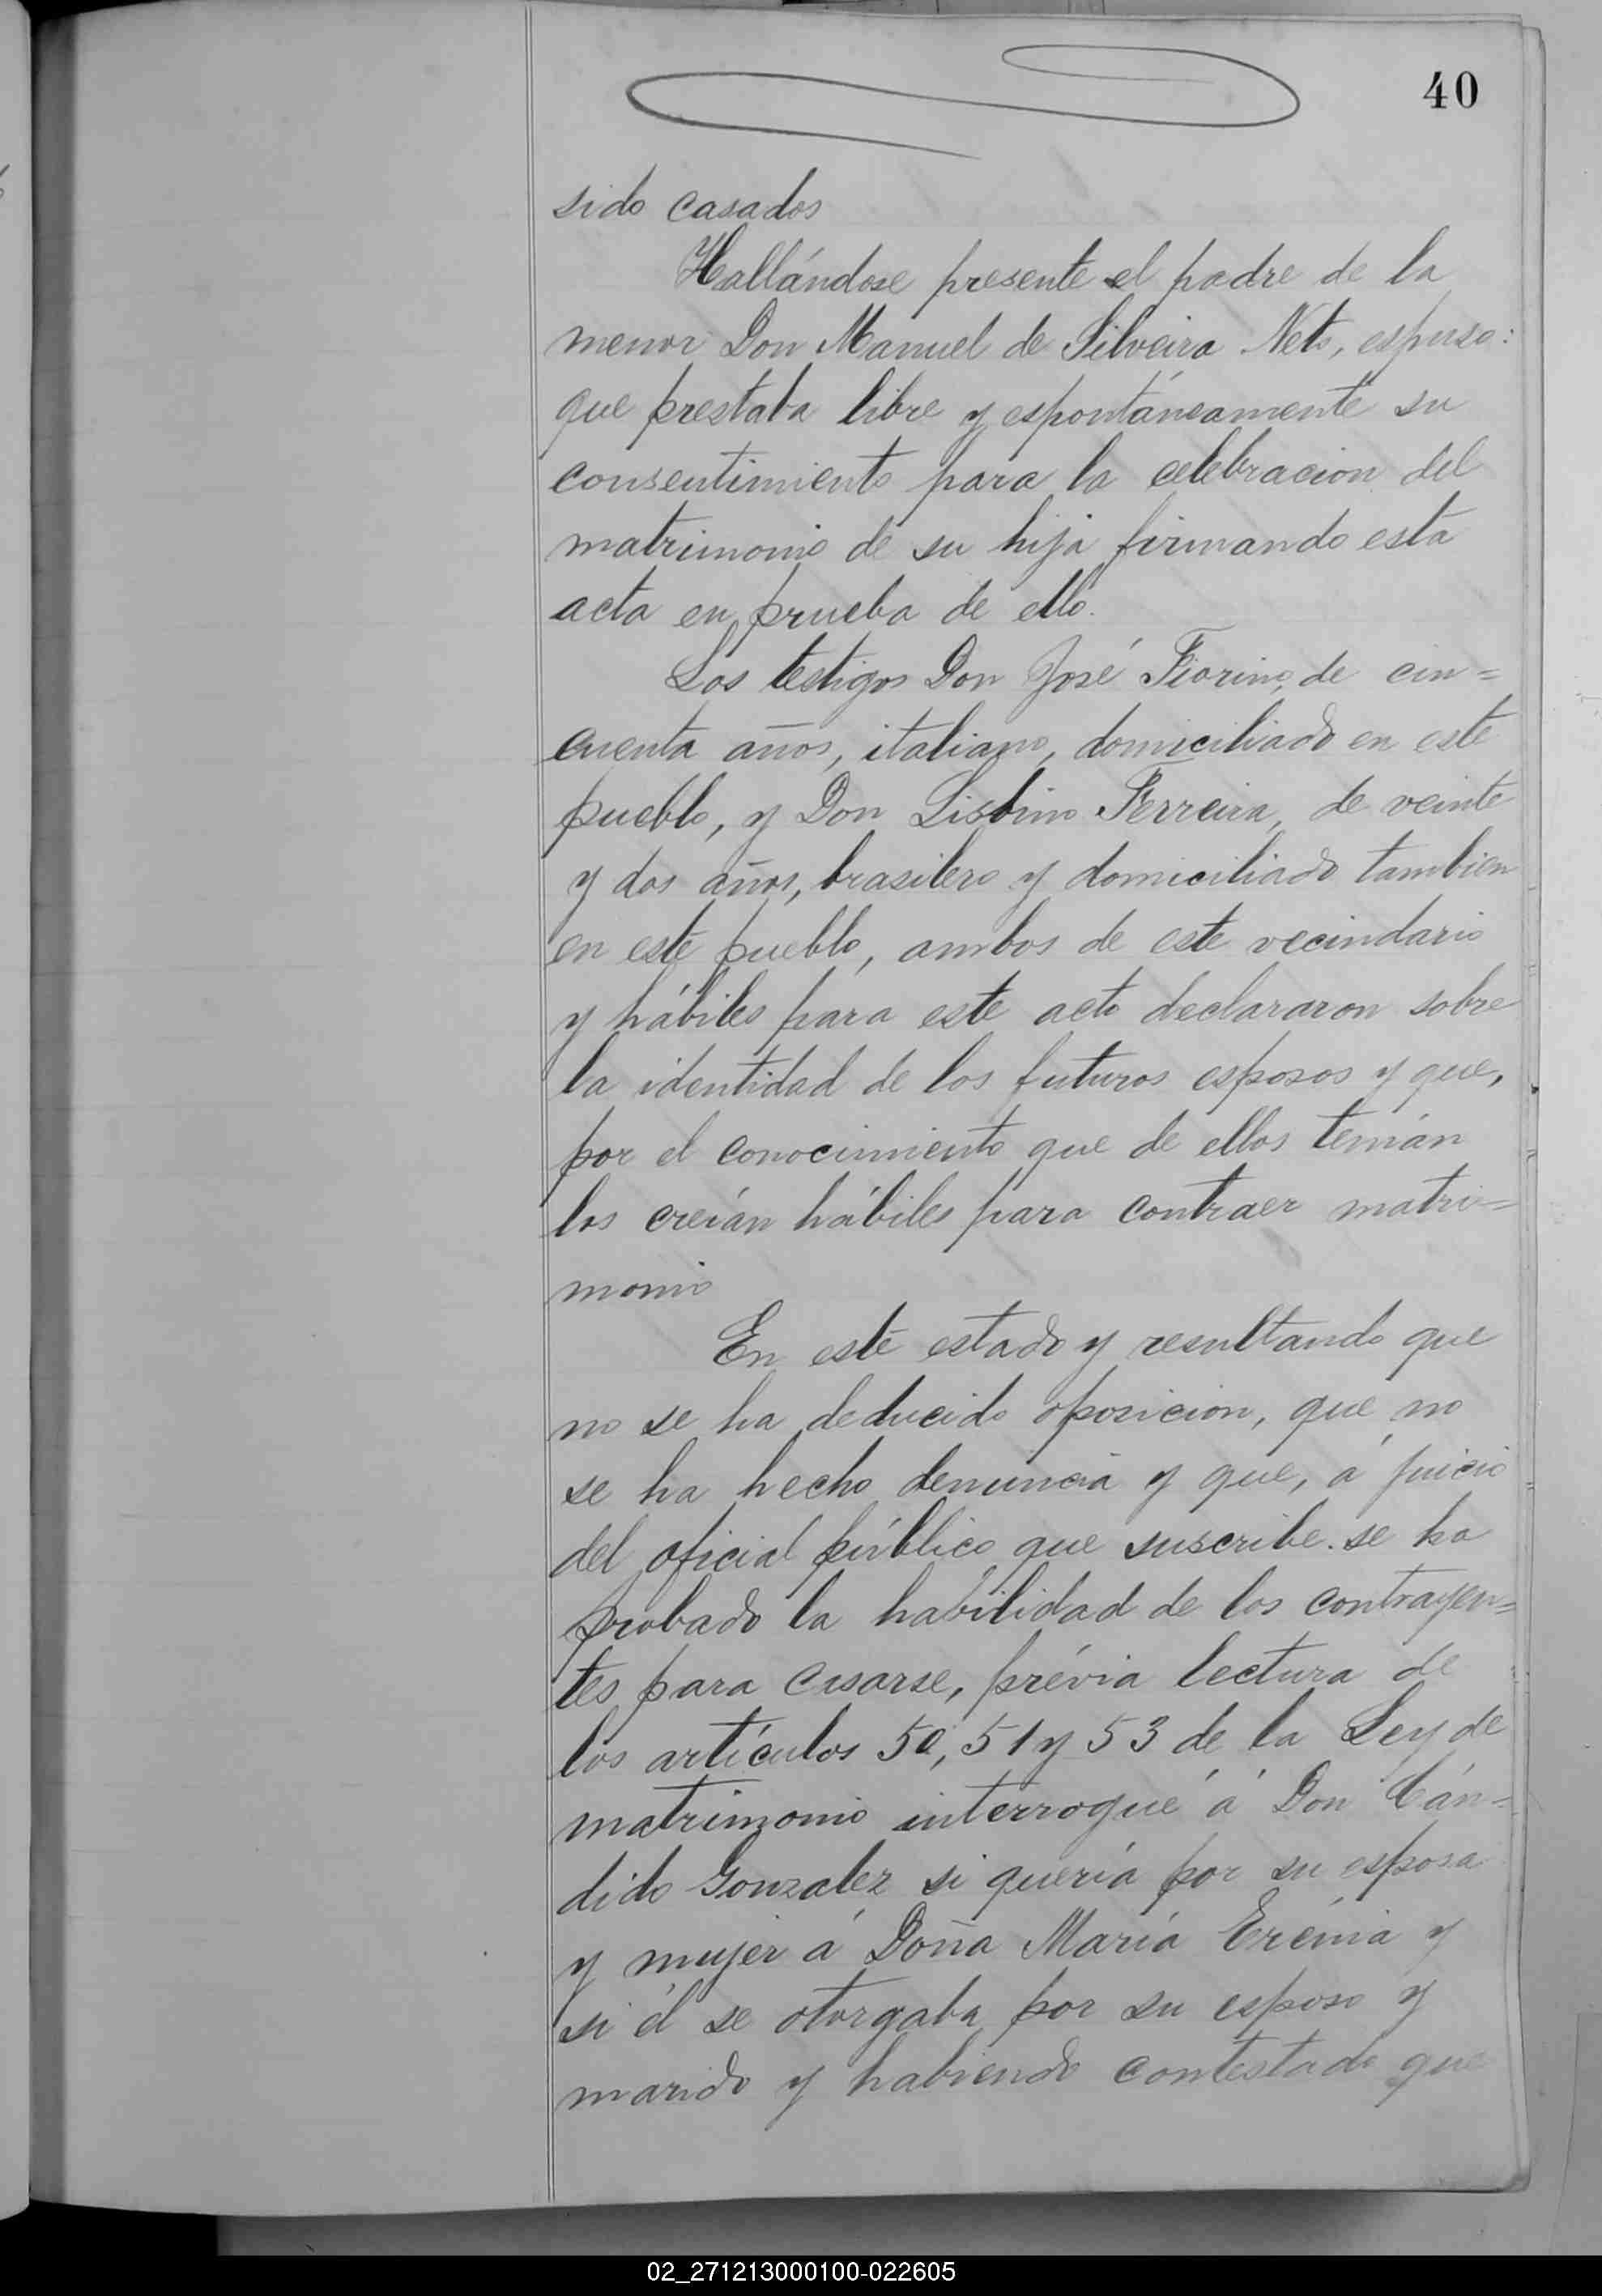 40
sido casados
Hallándose presente el padre de la
menor Don Manuel de Silveira Neto, espuso:
que prestaba libre y espontáneamente su
consentimiento para la celebracion del
matrimonio de su hija firmando esta
acta en prueba de ello.
Los testigos Don José Fiorino, de cin=
cuenta años, italiano, domiciliado en este
pueblo, y Don Lisbino Ferreira, de veinte
y dos años, brasilero y domiciliado tambien
en este pueblo, ambos de este vecindario
y hábiles para este acto declararon sobre
la identidad de los futuros esposos y que,
por el conocimiento que de ellos tenián
los creián hábiles para contraer matri=
monio
En este estado y resultando que
no se ha deducido oposicion, que no
se ha hecho denuncia y que, á juicio
del oficial público que suscribe. se ha
probado la habilidad de los contrayen=
tes para casarse, prévia lectura de
los artículos 50, 51 y 53 de la Ley de
matrimonio interrogué á Don Cán=
dido Gonzalez si quería por su esposa
y mujer á Doña María Erénia y
si él se otorgaba por su esposo y
marido y habiendo contestado que
02_271213000100-022605